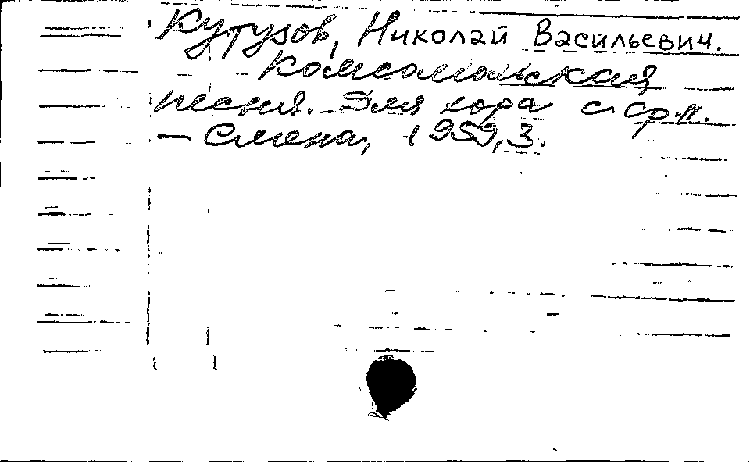 Кутузов, Николай Васильевич.
Комсомольская
песня. Для хора с ср.п.
— Смена, 1959, 3.